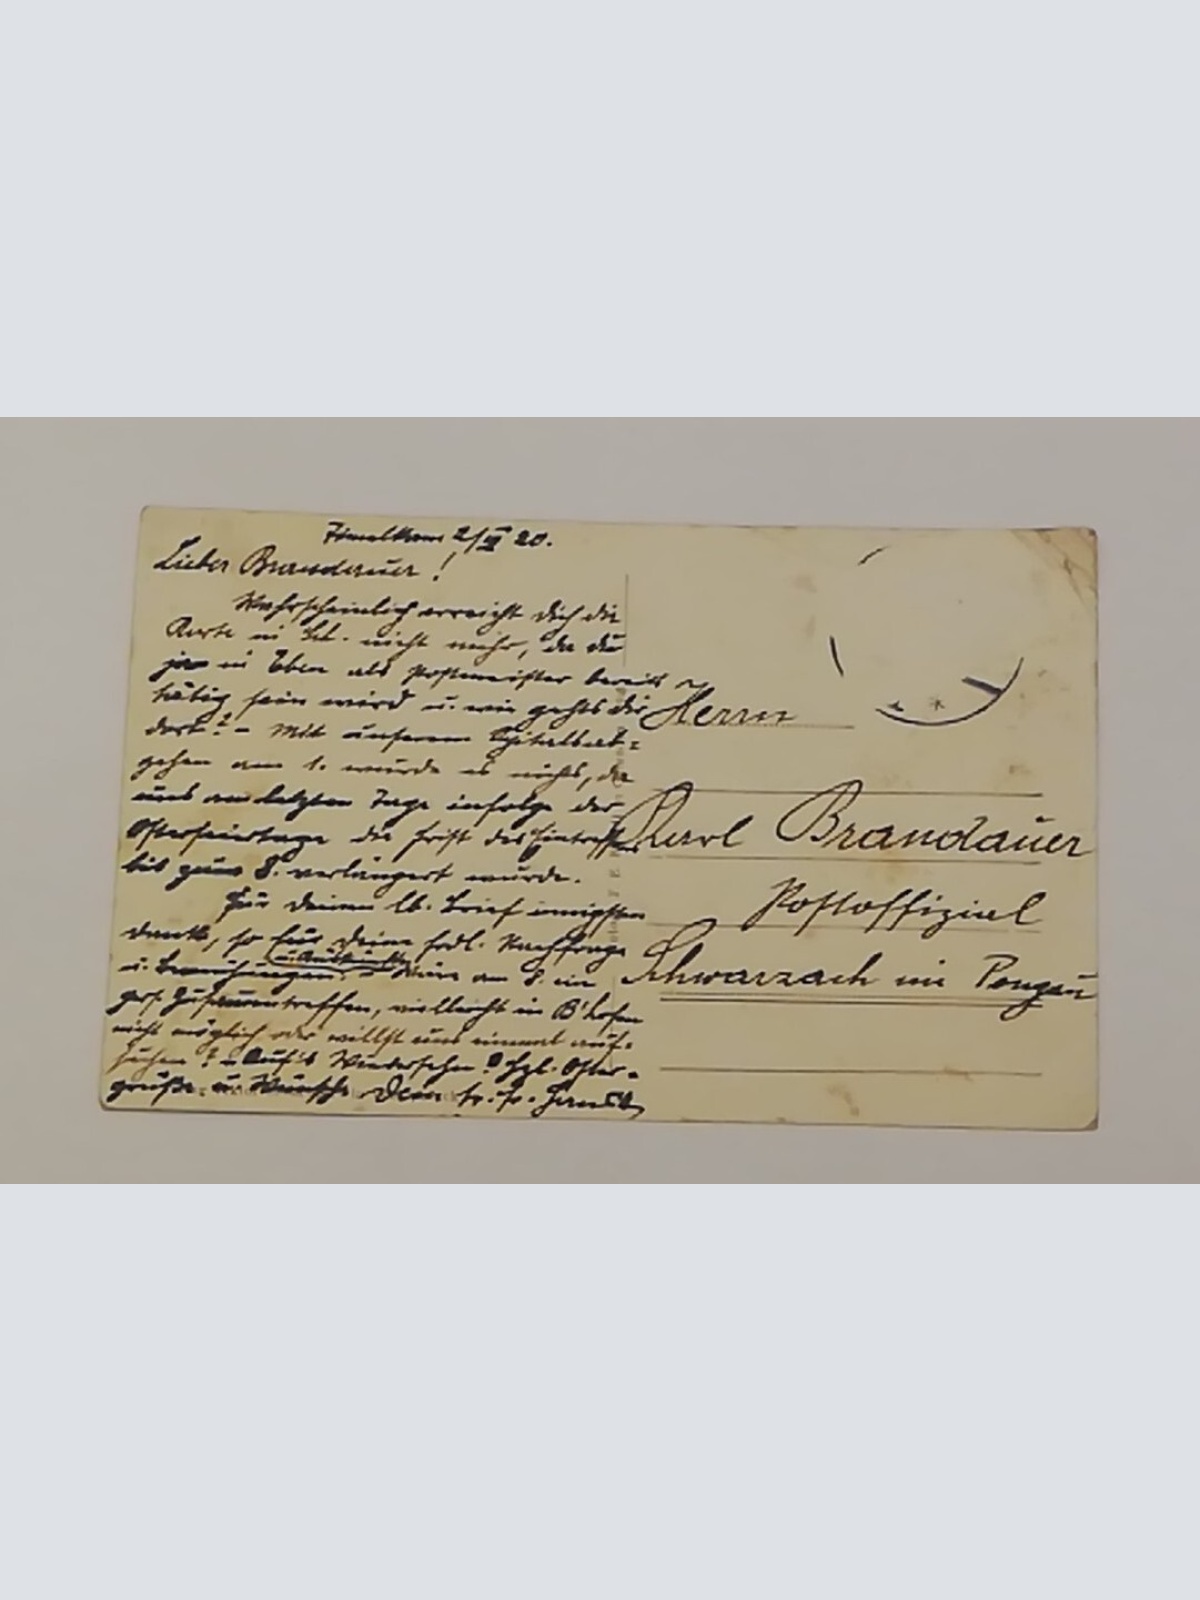 2/ 20.
Lieber Brandauer!
Wahrscheinlich erreicht dich die
Karte in nicht mehr, da du
ja in Eben als Postmeister bereits
tätig sein wird u. wie gehts dir
dort? – Mit unserem
gehen am 1. wurde es nichts, da
uns am letzten Tage infolge der
Osterfeiertage die Frist des Eintreffens
bis zum 8. verlängert wurde.
Für deinen lb. Brief innigsten
Dank, so für Deine frdl. Nachfrage
u. Auskünfte
u. Bemühungen. – Wäre am 8. ein
Zusammentreffen, vielleicht in B'hofen
nicht möglich oder willst uns einmal auf-
suchen? – Auf's Wiedersehen! Hzl. Oster-
grüße u. Wünsche Dein
Herrn
Karl Brandauer
Postoffizial
Schwarzach im Pongau